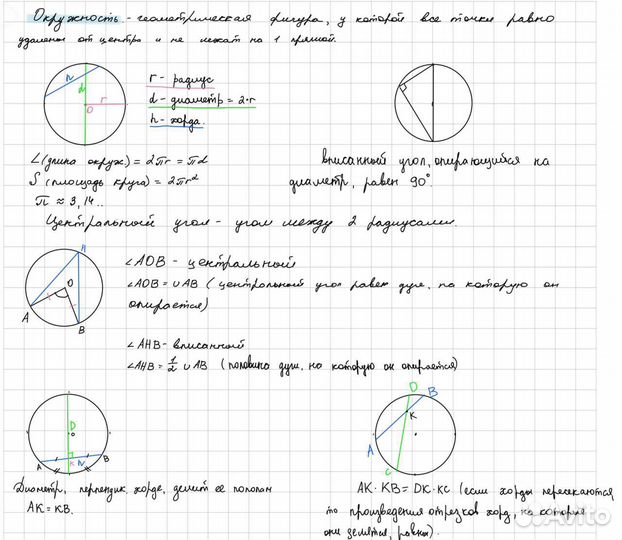 Окружность - геометрическая фигура, у которой все точки равно
удалены от центра и не лежат на 1 прямой.
h
d
r
O
r - радиус
d - диаметр = 2·r
h - хорда.
L (длина окруж) = 2πr = πd
S (площадь круга) = 2πr²
π ≈ 3,14..
вписанный угол, опирающийся на
диаметр, равен 90°.
Центральный угол - угол между 2 радиусами.
H
O
A
B
∠AOB - центральный
∠AOB = ∪AB (центральный угол равен дуге, на которую он
опирается)
∠AHB - вписанный
∠AHB = 1/2 ∪AB (половина дуги, на которую он опирается)
D
O
A
K
h
B
Диаметр, перпендик. хорде, делит её пополам
AK = KB.
D
B
K
A
C
AK · KB = DK · KC (если хорды пересекаются
то произведения отрезков хорд, на которые
они делятся, равны).
Avito